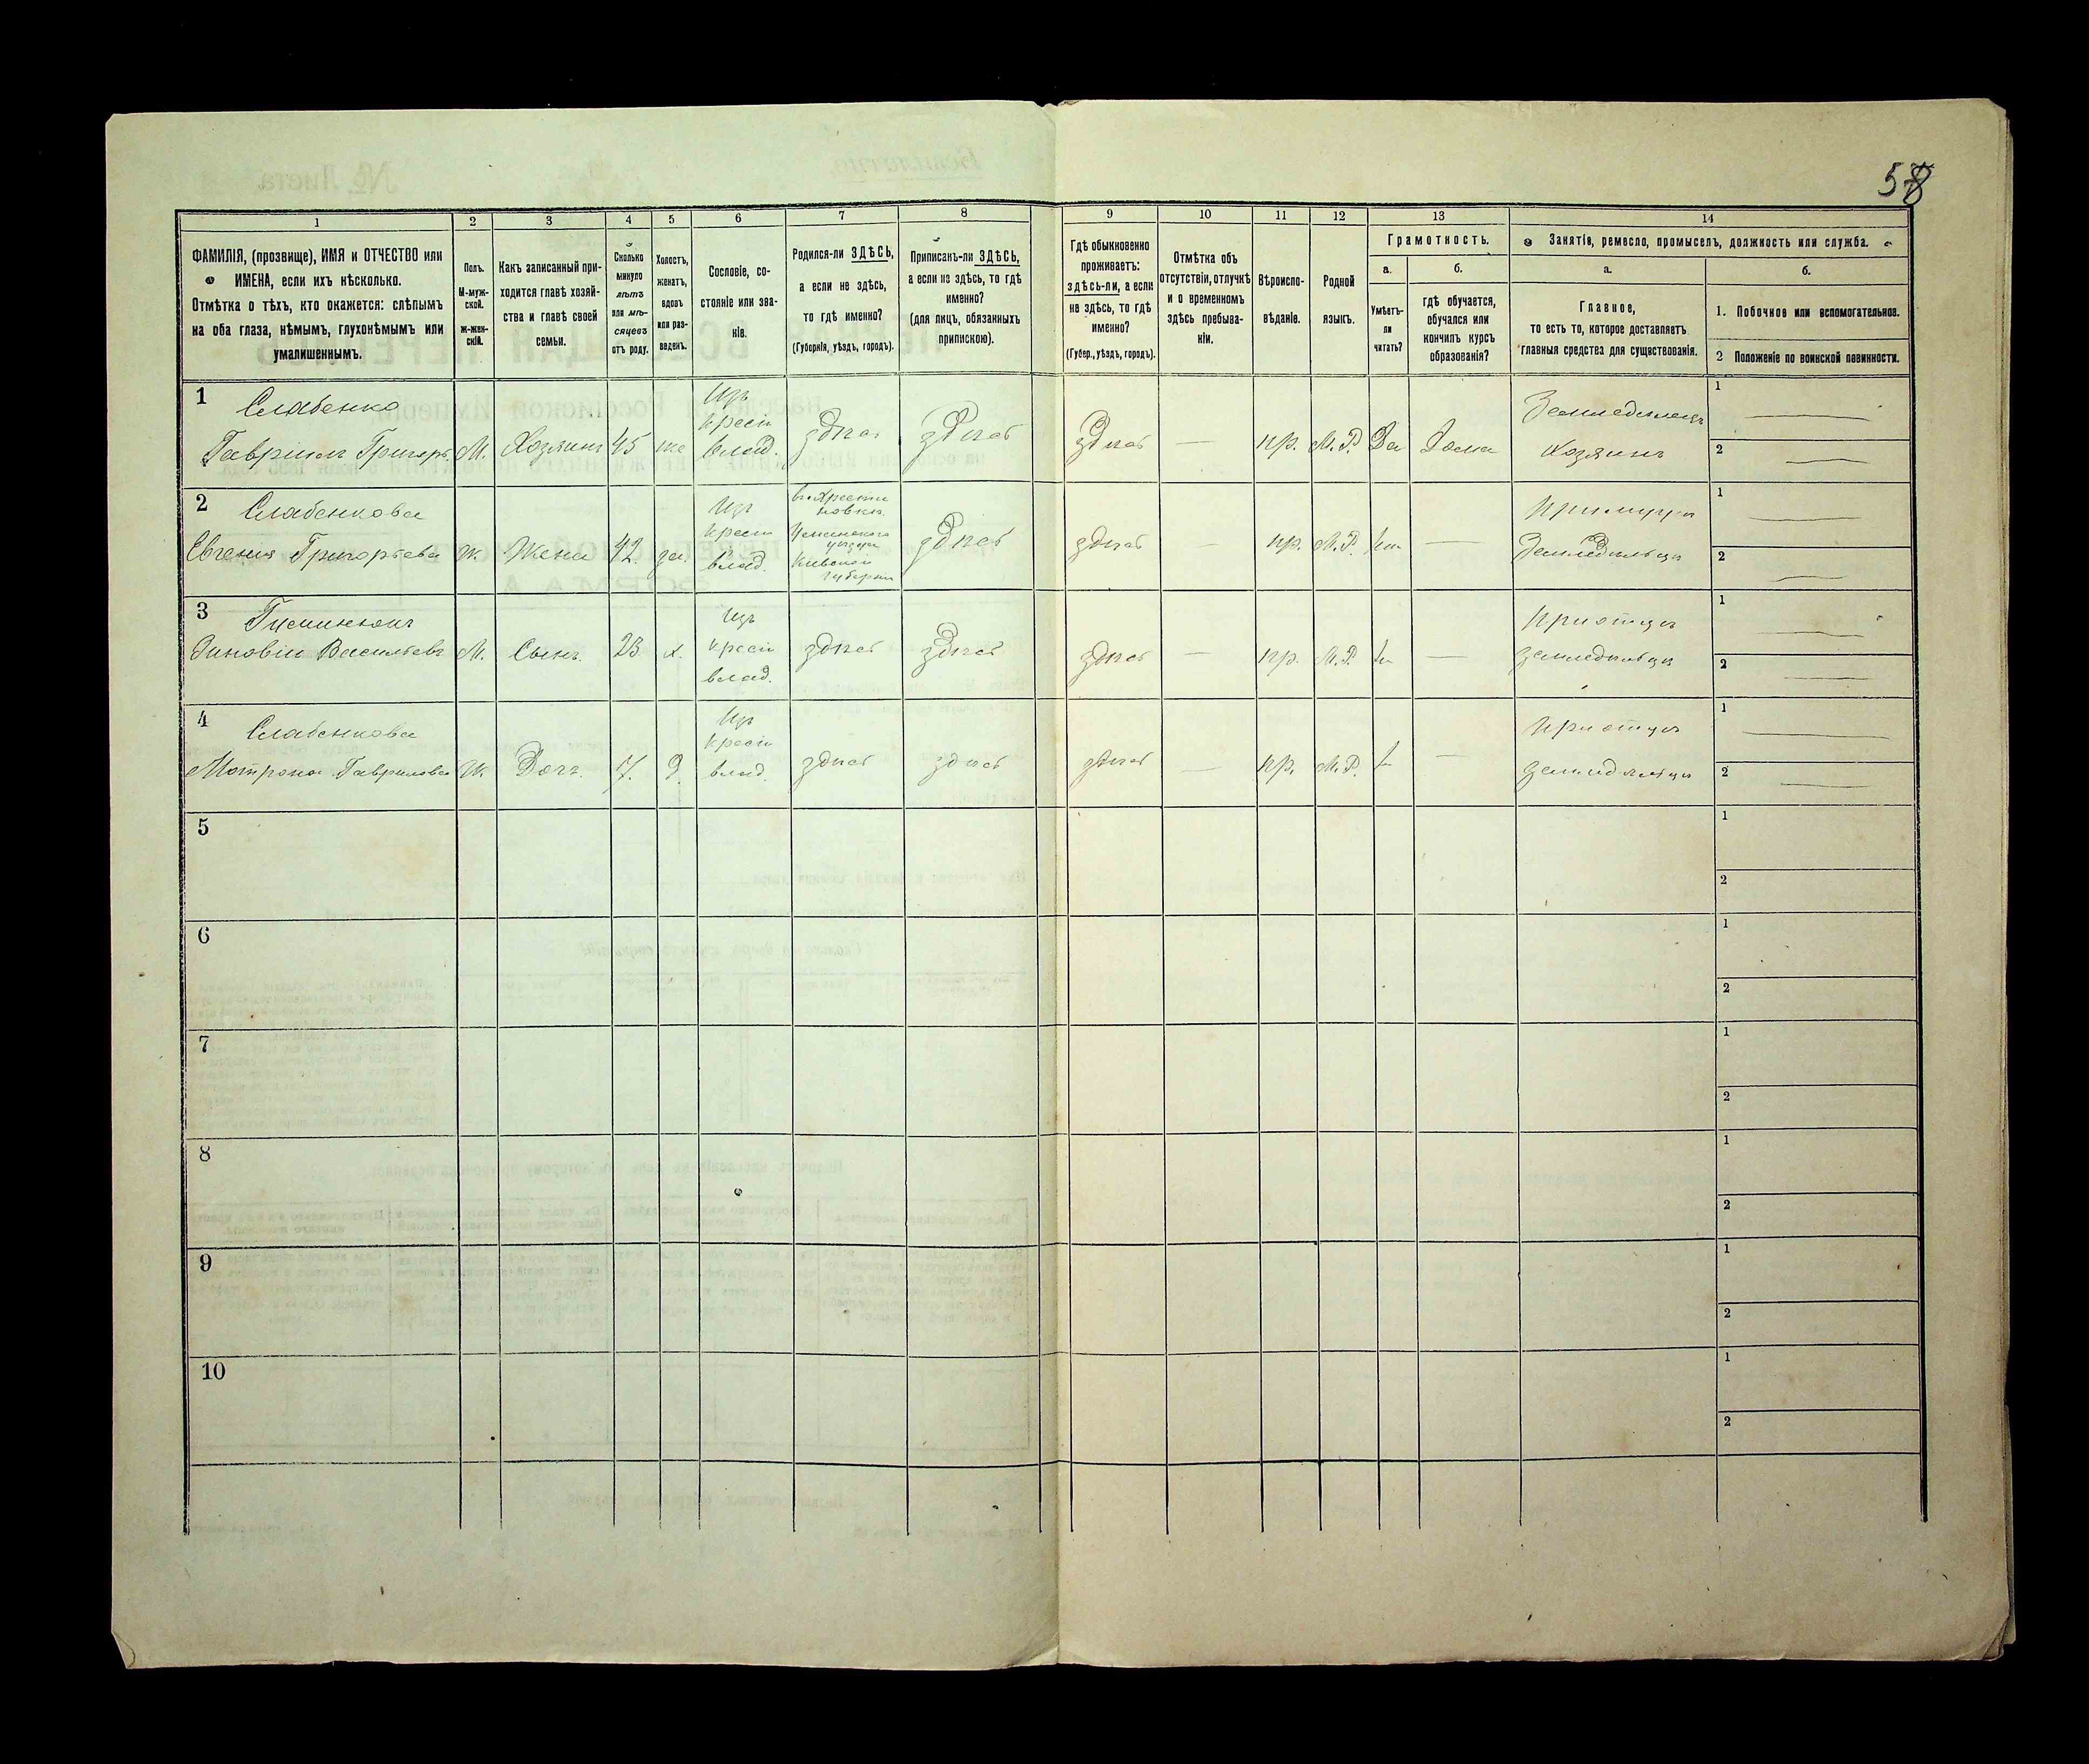 58
1 2 3 4 5 6 7 8 9 10 11 12 13 14
ФАМИЛІЯ, (прозвище), ИМЯ и ОТЧЕСТВО или
ИМЕНА, если ихъ нѣсколько.
Отмѣтка о тѣхъ, кто окажется: слѣпымъ
на оба глаза, нѣмымъ, глухонѣмымъ или
умалишеннымъ.
Полъ.
М-муж-
ской.
ж-жен-
скій.
Какъ записанный при-
ходится главѣ хозяй-
ства и главѣ своей
семьи.
Сколько
минуло
лѣтъ
или мѣ-
сяцевъ
отъ роду.
Холостъ,
женатъ,
вдовъ
или раз-
веденъ.
Сословіе, со-
стояніе или зва-
ніе.
Родился-ли ЗДѢСЬ,
а если не здѣсь,
то гдѣ именно?
(Губернія, уѣздъ, городъ).
Приписанъ-ли ЗДѢСЬ,
а если не здѣсь, то гдѣ
именно?
(для лицъ, обязанныхъ
припискою).
Гдѣ обыкновенно
проживаетъ:
здѣсь-ли, а если
не здѣсь, то гдѣ
именно?
(Губер., уѣздъ, городъ).
Отмѣтка объ
отсутствіи, отлучкѣ
и о временномъ
здѣсь пребыва-
ніи.
Вѣроиспо-
вѣданіе.
Родной
языкъ.
Грамотность.
а.
Умѣетъ-
ли
читать?
б.
гдѣ обучается,
обучался или
кончилъ курсъ
образованія?
Занятіе, ремесло, промыселъ, должность или служба.
а.
Главное,
то есть то, которое доставляетъ
главныя средства для существованія.
б.
1. Побочное или вспомогательное.
2 Положеніе по воинской повинности.
1 Слабенко
Гавріилъ Григорь. М. Хозяинъ 45 же
Изъ
крест
влад.
здѣсь здѣсь здѣсь — пр. М.Р. Да Дома
Земледѣлецъ
Хозяинъ
1
2
2 Слабенкова
Евгенія Григорьева Ж. Жена 42. за.
Изъ
крест
влад.
Уманскаго
уѣзда
Кіевской
губерніи
здѣсь здѣсь — пр. М.Р.
При мужѣ
земледѣльцѣ
1
2
3
Зиновій Васильевъ М. Сынъ. 23 х.
Изъ
крест
влад.
здѣсь здѣсь здѣсь — пр. М.Р. —
При отцѣ
земледѣльцѣ
1
2
4 Слабенкова
Мотрона Гаврилова Ж. Дочь.
Изъ
крест
влад.
здѣсь здѣсь здѣсь — пр. М.Р. —
При отцѣ
земледѣльцѣ
1
2
5
1
2
6
1
2
7
1
2
8
1
2
9
1
2
10
1
2